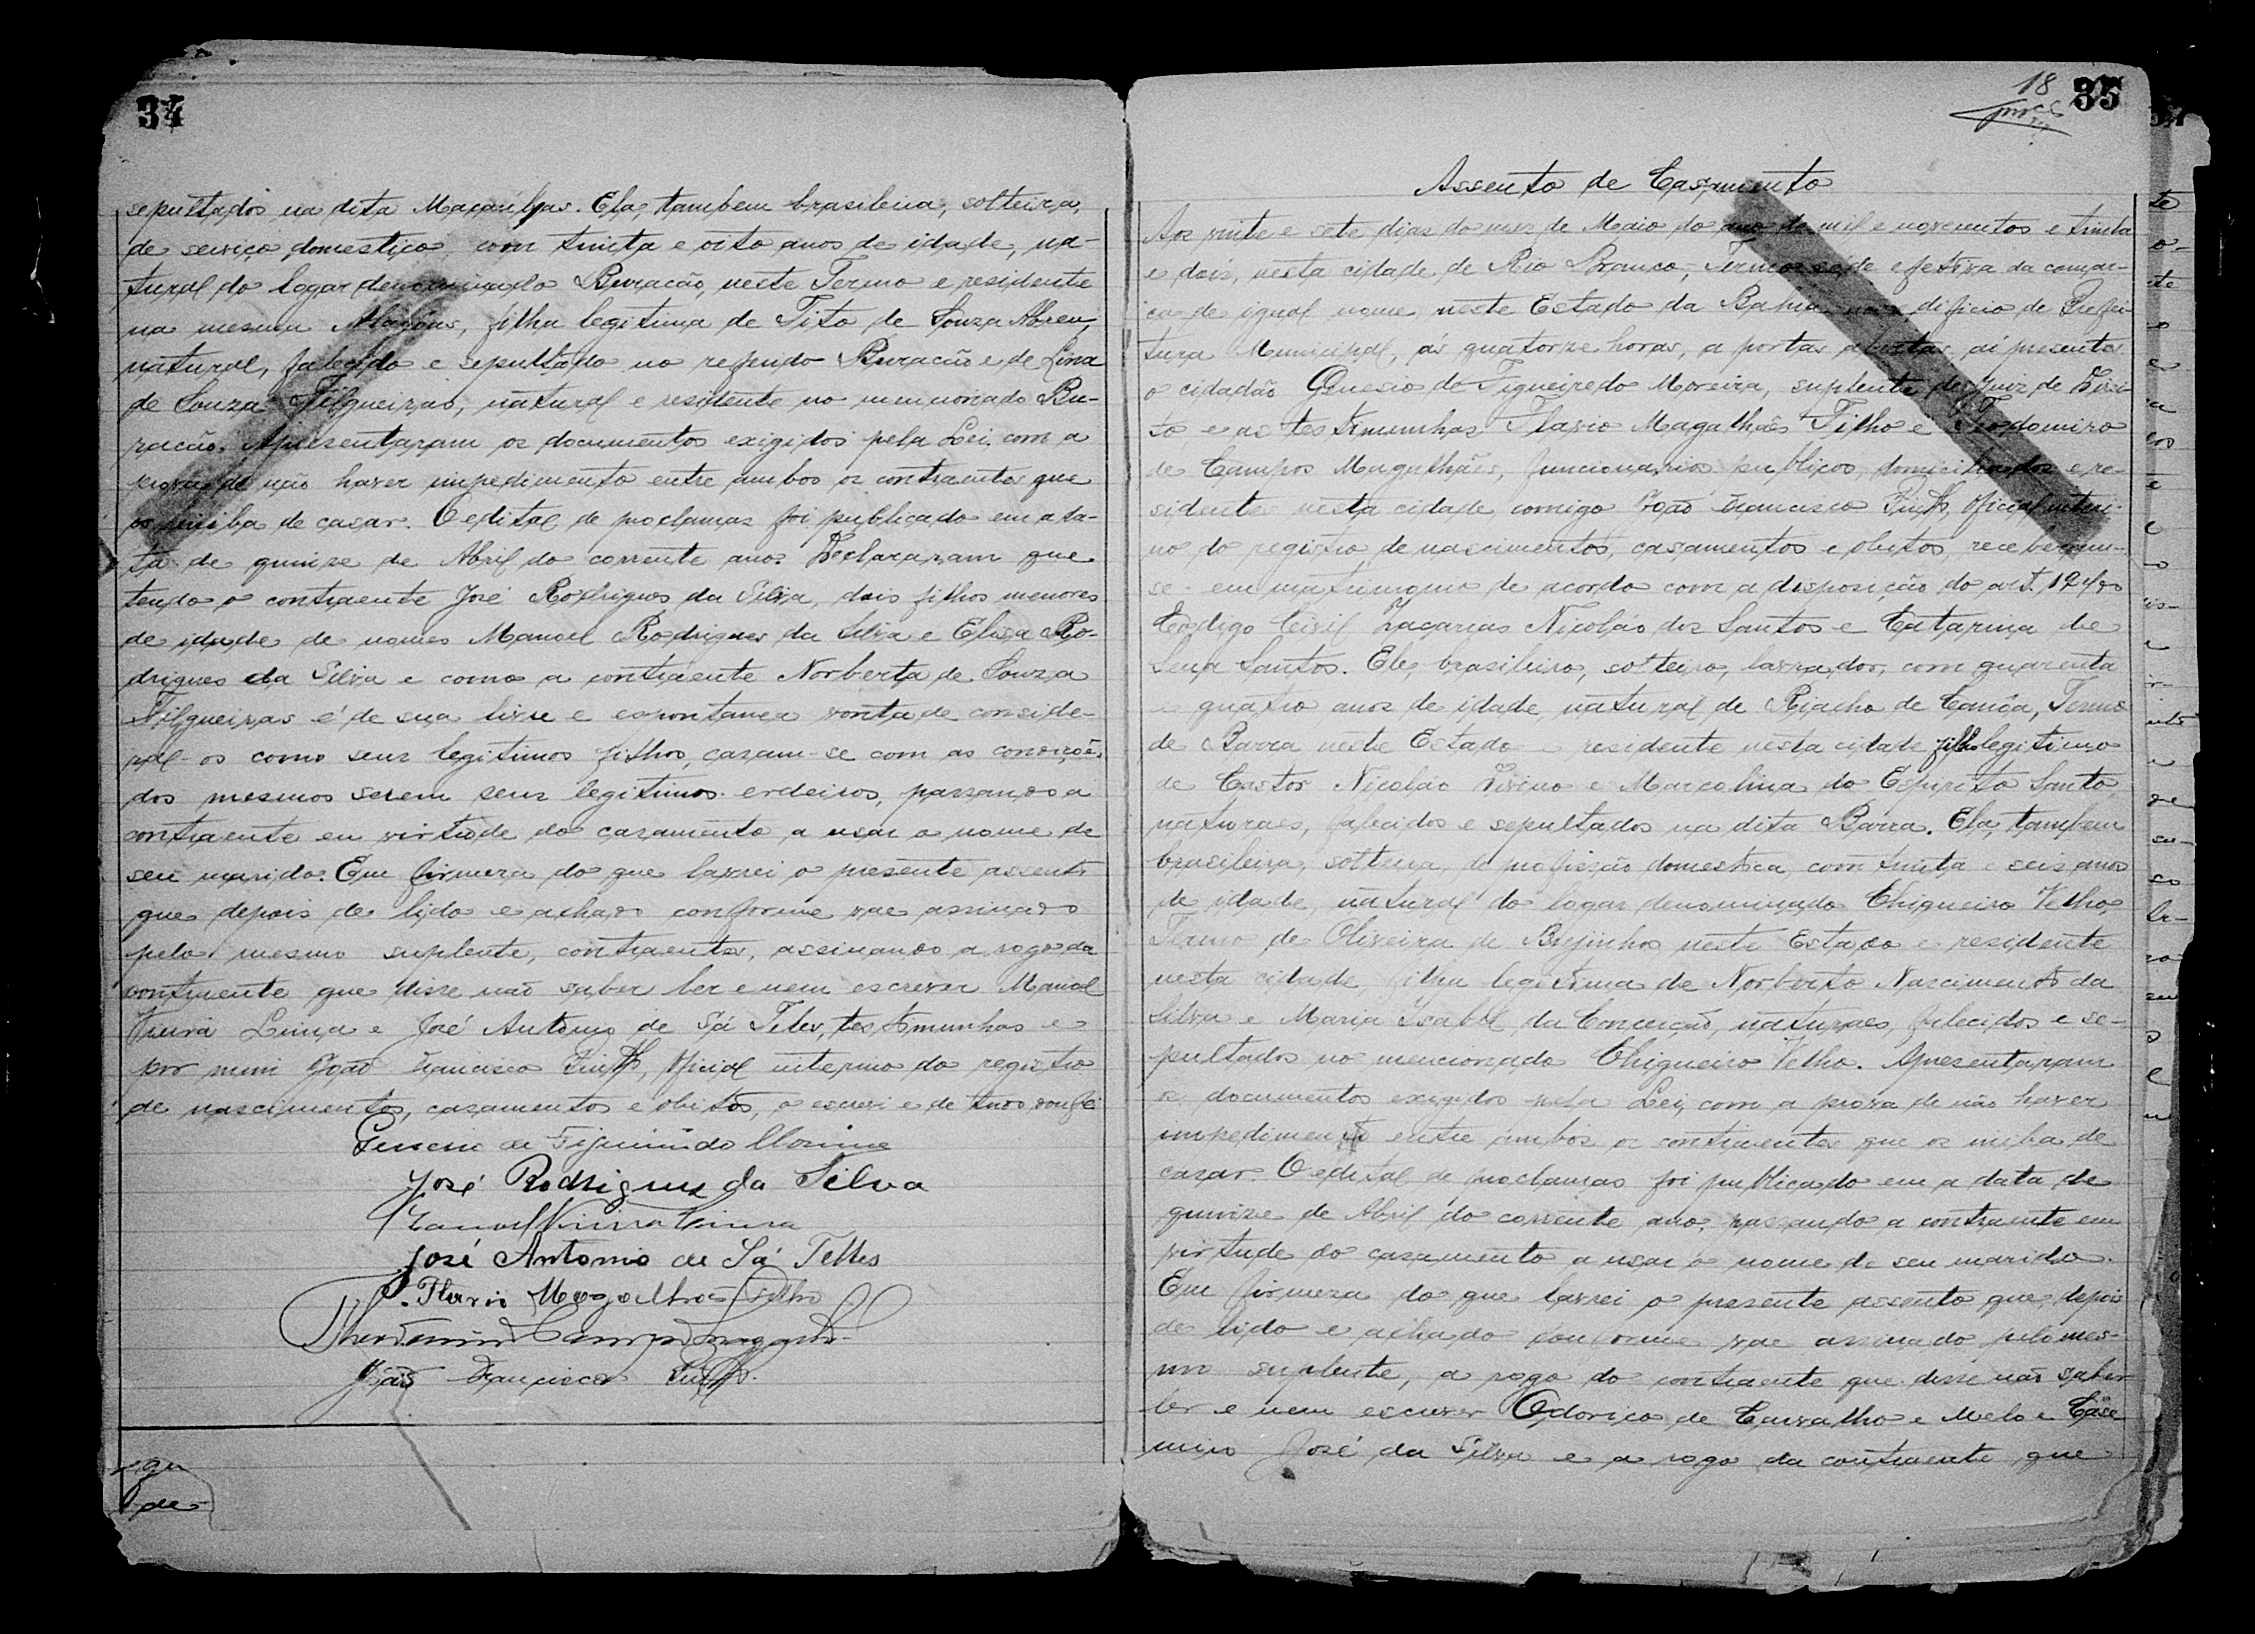 34
sepultados na dita Macaúbas. Ela, tambem brasileira, solteira,
de serviço domestico, com trinta e oito anos de idade, na-
tural do logar denominado Buracão, neste Termo e residente
na mesma filha legitima de Tito de Souza Abreu,
natural, falecido e sepultado no referido Buracão e de Lina
de Souza Filgueiras, natural e residente no mencionado Bu-
racão. Apresentaram os documentos exigidos pela Lei, com a
prova de não haver impedimento entre ambos os contraentes que
os iniba de casar. O edital de proclamas foi publicado em a da-
ta de quinze de Abril do corrente ano. Declararam que
tendo o contraente José Rodrigues da Silva, dois filhos menores
de idade de nomes Manoel Rodrigues da Silva e Elisa Ro-
drigues da Silva e como a contraente Norberta de Souza
Filgueiras é de sua livre e espontanea vontade conside-
ral-os como seus legitimos filhos, casam-se com as condições
dos mesmos serem seus legitimos erdeiros, passando a
contraente em virtude do casamento a usar o nome de
seu marido. Em firmeza do que lavrei o presente assento
que depois de lido e achado conforme vae assinado
pelo mesmo suplente, contraentes, assinando a rogo da
contraente que disse não saber ler e nem escrever Manoel
Vieira Lima e José Antonio de Sá Teles, testemunhas e
por mim João Francisco , Oficial interino do registro
de nascimentos, casamentos e obitos, o escrevi e de tudo dou fé
Genesio de Figueirêdo Moreira
José Rodrigues da Silva
Manoel Vieira
José Antonio de Sá Telles
Flavio Magalhães Filho
Theodomiro Campos Magalhães
João Francisco
que
de
18
35
Assento de Casamento
Aos vinte e sete dias do mes de Maio do ano de mil e novecentos e trinta
e dois, nesta cidade de Rio Branco, Termo séde efetiva da comar-
ca de igual nome, neste Estado da Bahia no edificio de Prefei-
tura Municipal, ás quatorze horas, a portas abertas, aí presentes
o cidadão Genesio de Figueiredo Moreira, suplente de Juiz de Direi-
to e as testimunhas Flavio Magalhães Filho e Teodomiro
de Campos Magalhães, funcionarios publicos, domiciliados e re-
sidentes nesta cidade, comigo João Francisco , Oficial interi-
no do registro de nascimentos, casamentos e obitos, receberam-
se em matrimonio de acordo com a disposição do art. 194 do
Codigo Civil Zacarias Nicoláo dos Santos e Catarina de
Sena Santos. Ele, brasileiro, solteiro, lavrador, com quarenta
e quatro anos de idade, natural de Riacho de Canôa, Termo
de Barra neste Estado e residente nesta cidade filho legitimo
de Castor Nicoláo e Marcolina do Espirito Santo,
naturaes, falecidos e sepultados na dita Barra. Ela, tambem
brasileira, solteira, de profissão domestica, com trinta e seis anos
de idade, natural do logar denominado Chiqueiro Velho,
Termo de Oliveira de Brejinhos neste Estado e residente
nesta cidade, filha legitima de Norberto Nascimento da
Silva e Maria Isabel da Conceição, naturaes, falecidos e se-
pultados no mencionado Chiqueiro Velho. Apresentaram
os documentos exigidos pela Lei, com a prova de não haver
impedimento entre ambos os contraentes que os iniba de
casar. O edital de proclamas foi publicado em a data de
quinze de Abril do corrente ano, passando a contraente em
virtude do casamento a usar o nome de seu marido.
Em firmeza do que lavrei o presente assento que, depois
de lido e achado conforme vae assinado pelo mes-
mo suplente, a rogo do contraente que disse não saber
ler e nem escrever Odorico de Carvalho e Melo e Case
miro José da Silva e a rogo da contraente, que